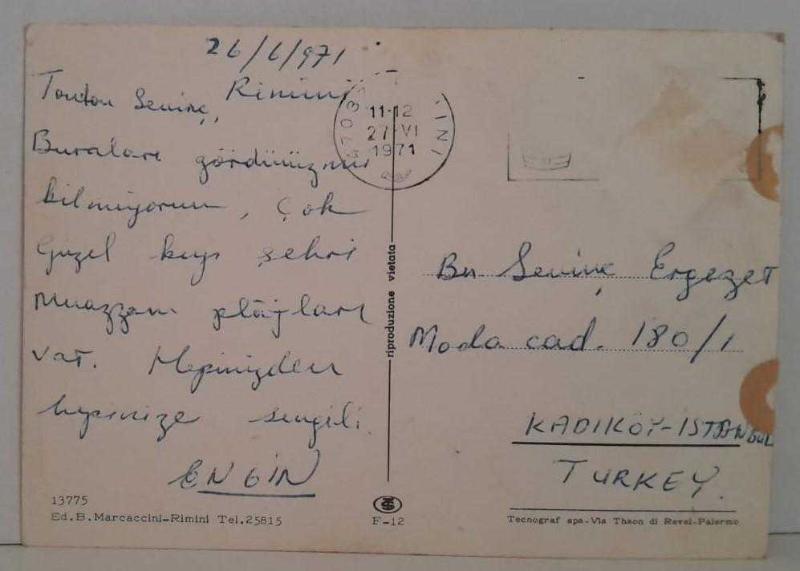 26/6/971
Rimini
Tonton Sevinç,
Buraları gördünüz mü
bilmiyorum, çok
güzel kıyı şehri
muazzam plajları
var. Hepinizden
hepinize sevgiler.
ENGİN
47037
RIMINI
11-12
27·VI
1971
riproduzione vietata
Bn Sevinç Ergezet
Moda cad. 180/1
KADIKÖY-İSTANBUL
TURKEY.
13775
Ed.B.Marcaccini-Rimini Tel.25815
F-12
Tecnograf spa-Via Thaon di Revel-Palermo